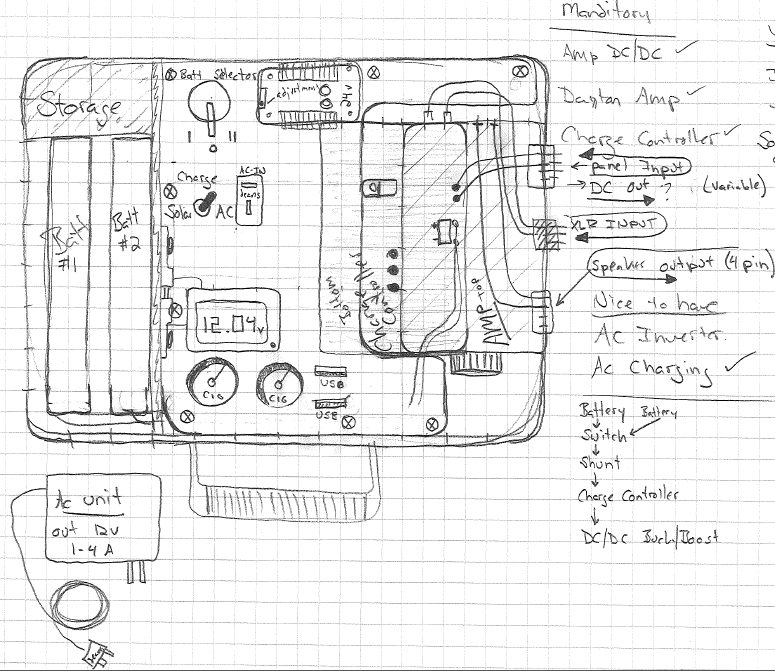 Manditory
Amp DC/DC ✓
Dayton Amp ✓
Charge Controller ✓
So
← panel Input
→ DC out ? (variable)
XLR INPUT
Speaker output (4 pin)
Nice to have
AC Inverter
AC Charging ✓
Battery Battery
Switch
Shunt
Charge Controller
DC/DC Buck/Boost
Storage
Batt Selector
I II
0
adjustment
24v
Charge
Solar AC
AC-IN
Batt
#1
Batt
#2
12.04v
CIG
CIG
USB
USB
Charge Controller
Bottom
AMP Top
Ac unit
out 12v
1-4 A